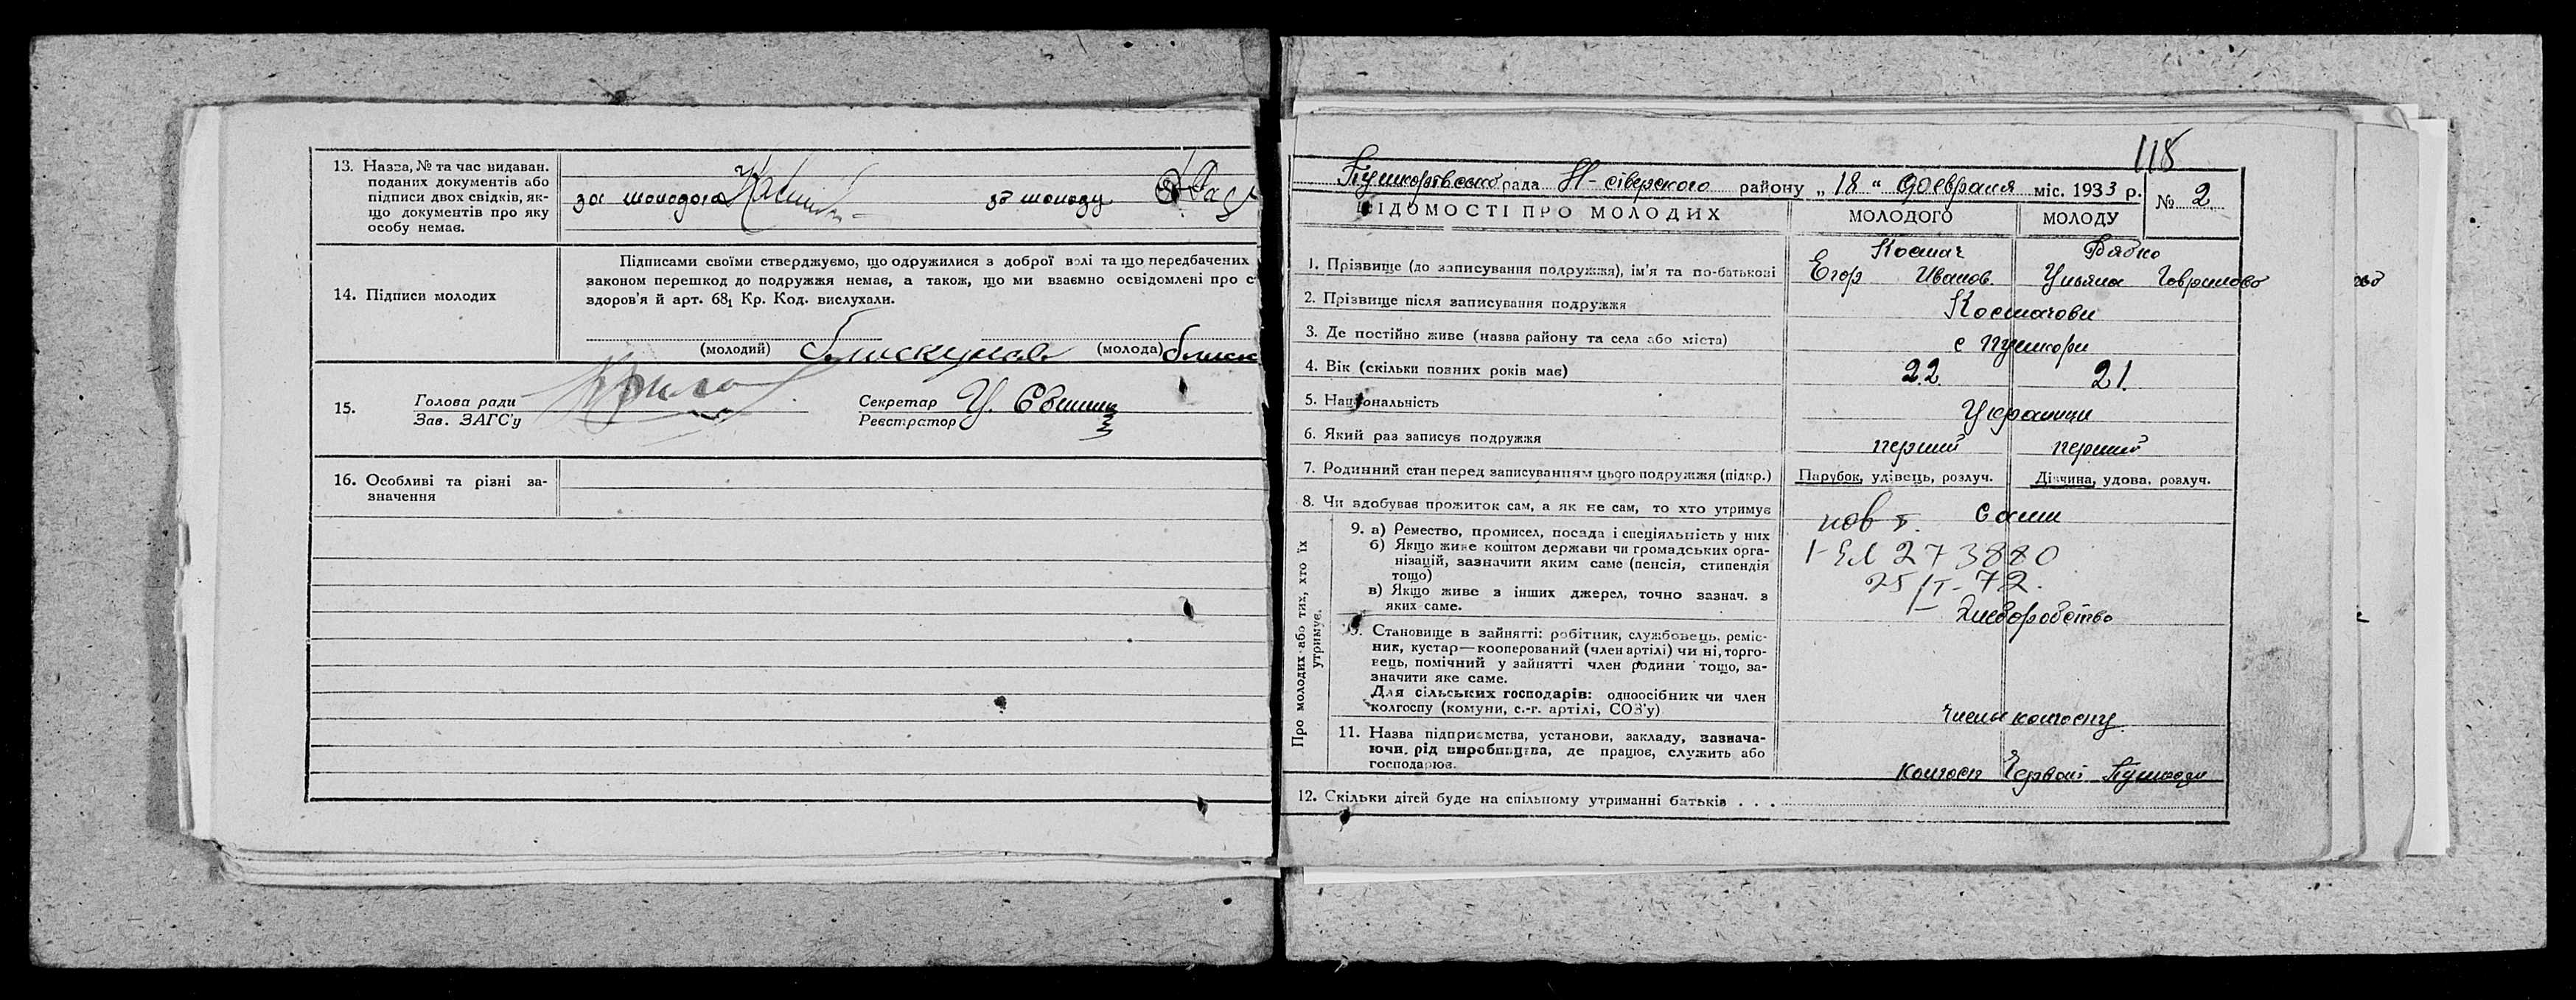 13. Назва, № та час видаван.
поданих документів або
підписи двох свідків, як-
що документів про яку
особу немає.
за молодого
за молоду
14. Підписи молодих
Підписами своїми стверджуємо, що одружилися з доброї волі та що передбачених
законом перешкод до подружжя немає, а також, що ми взаємно освідомлені про с
здоров'я й арт. 68₁ Кр. Код. вислухали.
(молодий)
(молода)
15.
Голова ради
Зав. ЗАГС'у
Секретар
Реєстратор
16. Особливі та різні за-
значення
118
Пушкарівською рада Н-сіверского району „ 18 “ февраля міс. 1933 р.
№ 2
ВІДОМОСТІ ПРО МОЛОДИХ
МОЛОДОГО
МОЛОДУ
1. Прізвище (до записування подружжя), ім'я та по-батькові
Космач
Егор Иванов.
Бабко
Ульяна Гавриловo
2. Прізвище після записування подружжя
Космачови
3. Де постійно живе (назва району та села або міста)
с Пушкари
4. Вік (скільки повних років має)
22
21.
5. Національність
Українци
6. Який раз записує подружжя
перший
перший
7. Родинний стан перед записуванням цього подружжя (підкр.)
Парубок, удівець, розлуч.
Дівчина, удова, розлуч.
8. Чи здобуває прожиток сам, а як не сам, то хто утримує
сами
Про молодих або тих, хто їх
утримує.
9. а) Ремество, промисел, посада і спеціяльність у них
б) Якщо живе коштом держави чи громадських орга-
нізацій, зазначити яким саме (пенсія, стипендія
тощо)
в) Якщо живе з інших джерел, точно зазнач. з
яких саме.
пов т.
I-ЕЛ 273880
25/I-72.
Хлеборобство
10. Становище в зайнятті: робітник, службовець, реміс-
ник, кустар—кооперований (член артілі) чи ні, торго-
вець, помічний у зайнятті член родини тощо, за-
значити яке саме.
Для сільських господарів: одноосібник чи член
колгоспу (комуни, с.-г. артілі, СОЗ'у)
члены колгоспу
11. Назва підприємства, установи, закладу, зазнача-
ючи, рід виробництва, де працює, служить або
господарює.
колгосп Червоні Пушкари
12. Скільки дітей буде на спільному утриманні батьків . . .